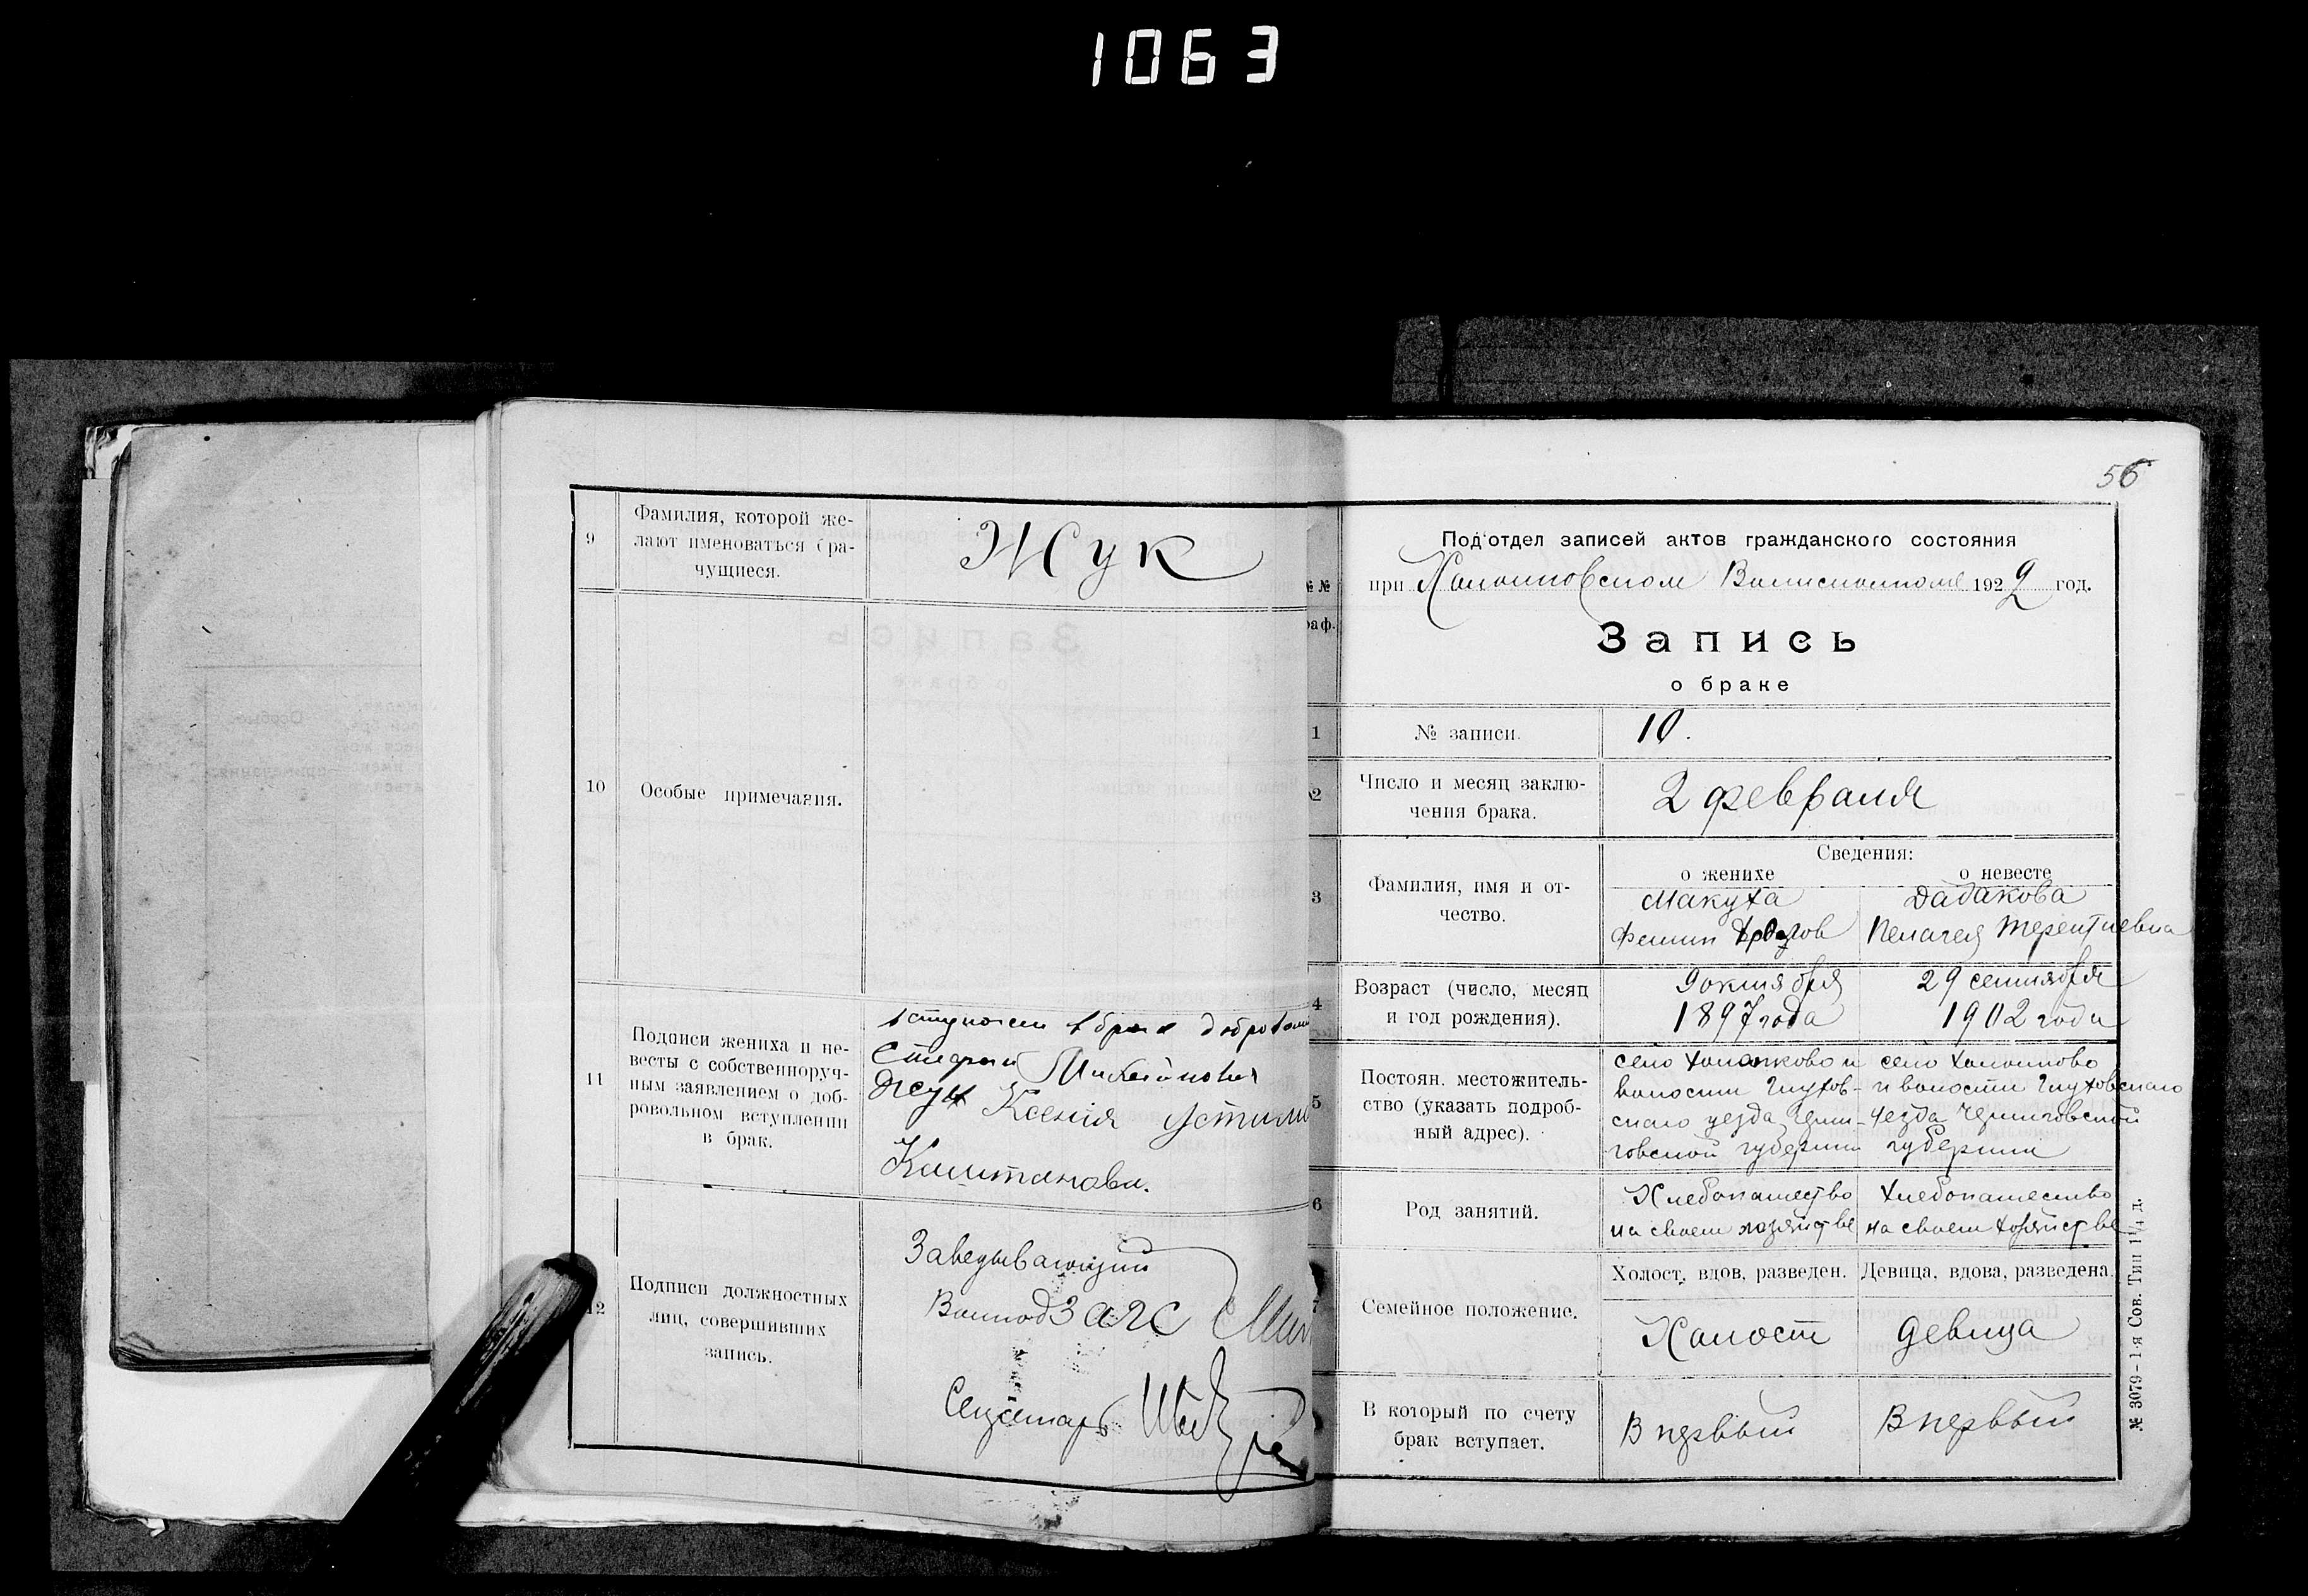 1063
9
Фамилия, которой же-
лают именоваться бра-
чущиеся.
Жук
10
Особые примечания.
11
Подписи жениха и не-
весты с собственноруч-
ным заявлением о доб-
ровольном вступлении
в брак.
вступаем в брак добровол
Жук Ксения Устим
Каштанова.
12
Подписи должностных
лиц, совершивших
запись.
Заведывающий
ЗАГС
Секретарь
56
Под'отдел записей актов гражданского состояния
при 1922 год.
№№
раф.
Запись
о браке
1
№ записи.
10.
2
Число и месяц заклю-
чения брака.
2 февраля
3
Фамилия, имя и от-
чество.
Сведения:
о женихе
о невесте
Макуха
Дадакова
Пелагея Терентиевна
4
Возраст (число, месяц
и год рождения).
9 октября
1897 года
29 сентября
1902 года
5
Постоян. местожитель-
ство (указать подроб-
ный адрес).
волости Глухов-
скаго уезда Черни-
говской губернии
и волости Глуховскаго
уезда Черниговской
губернии
6
Род занятий.
Хлебопашество
на своем хозяйстве
Хлебопашество
на своем хозяйстве
7
Семейное положение.
Холост, вдов, разведен.
Девица, вдова, разведена.
Холост
девица
В который по счету
брак вступает.
В первый
В первый
№ 3079—1-я Сов. Тип 1¼ д.